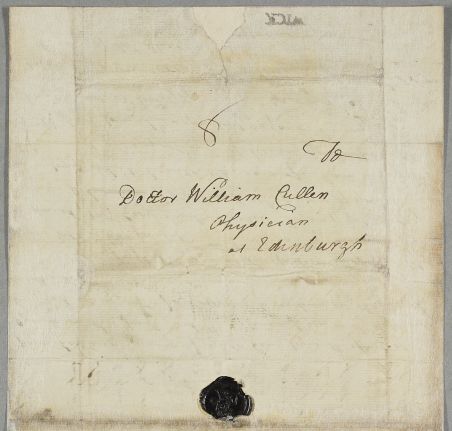 8
To
Doctor William Cullen
Physician
at Edinburgh